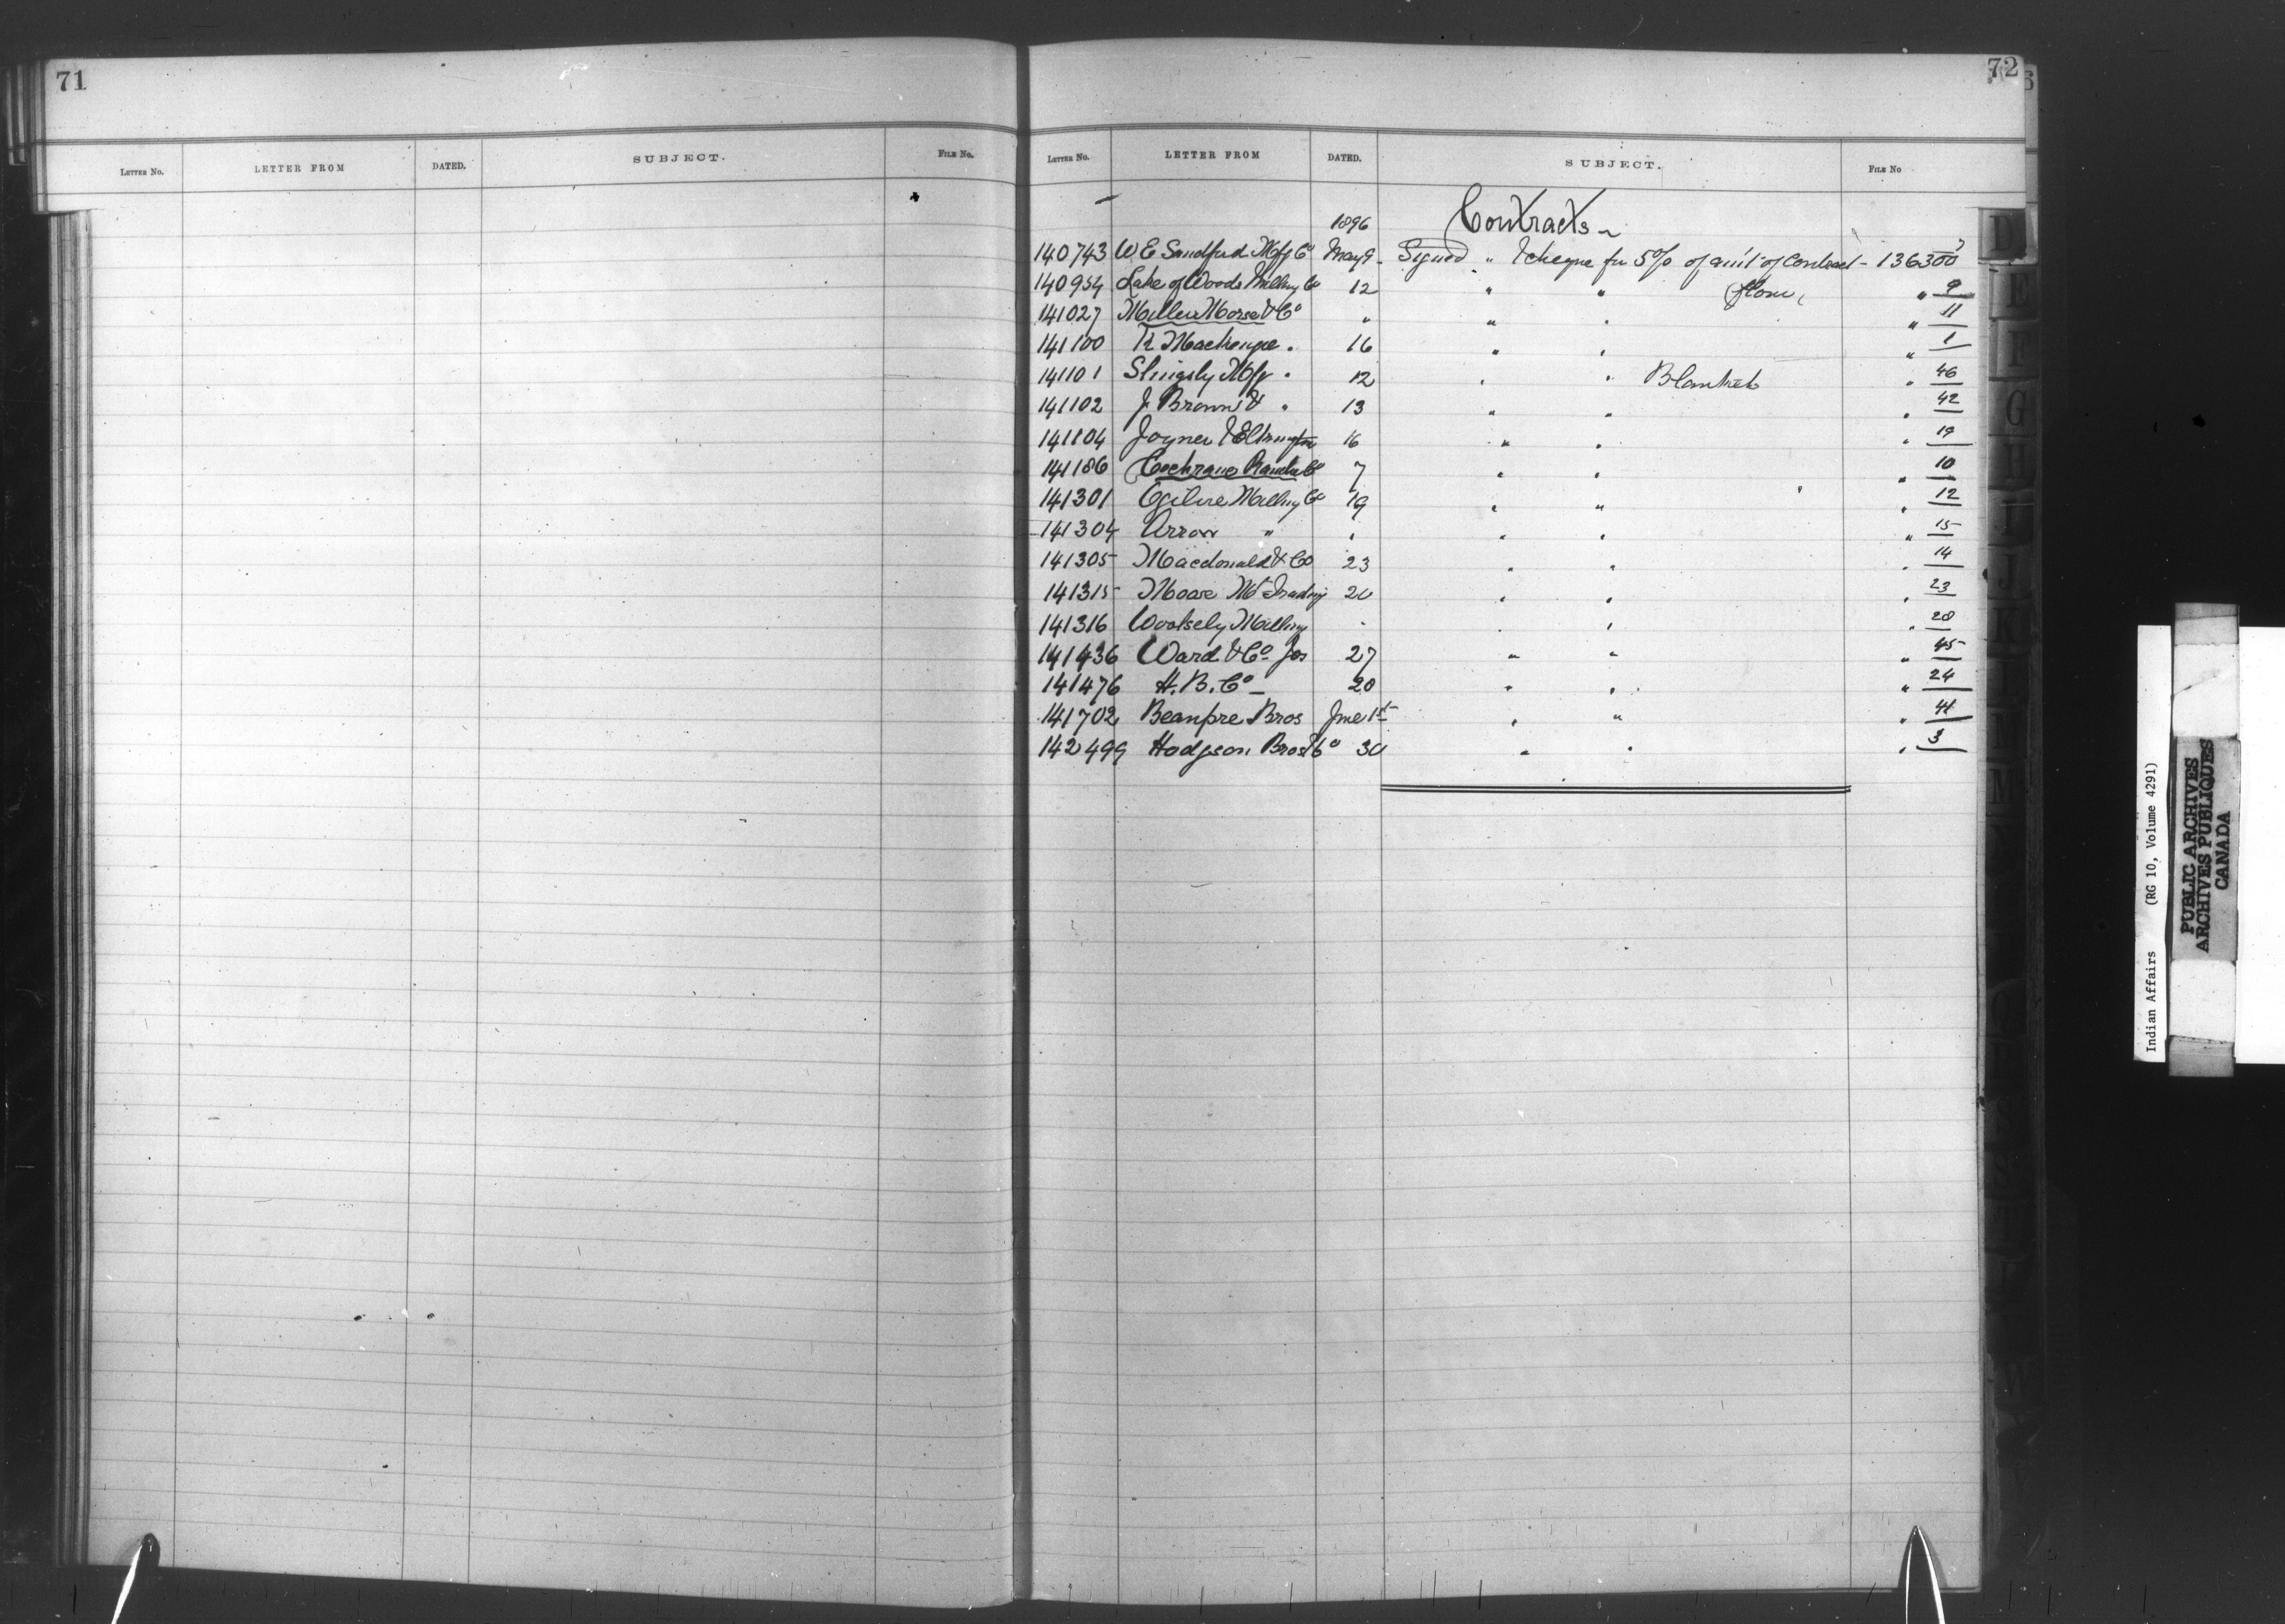 71
LETTER NO. LETTER FROM DATED. SUBJECT. FILE No.
72
LETTER NO. LETTER FROM DATED. SUBJECT. FILE No
1896 Contracts
140743 W E Sandford Mfg Co May 9 Signed " & cheque for 5% of amt of Contract - 136300
140954 Lake of Woods Milling Co 12 " " flour " 9
141027 Miller Morse & Co " " " " 11
141100 16 " " " 1
141101 Slingsly Mfg " 12 " " Blankets " 46
141102 J Brown & " 13 " " " 42
Joyner & Elkington 16 " " " 19
141186 Cochrane Ranche Co 7 " " " 10
141301 Ogilvie Milling Co 19 " " " 12
141304 Arrow " " " " " 15
141305 Macdonald & Co 23 " " " 14
141315 Moose Mt Trading 20 " " " 23
141316 Woolsely Milling " " " " 28
141436 Ward & Co Jos 27 " " " 45
141476 H. B. Co 20 " " " 24
141702 Beaupre Bros June 1st " " "
142499 Hodgson Bros Co 30 " " " 3
Indian Affairs (RG 10, Volume 4291)
PUBLIC ARCHIVES
ARCHIVES PUBLIQUES
CANADA